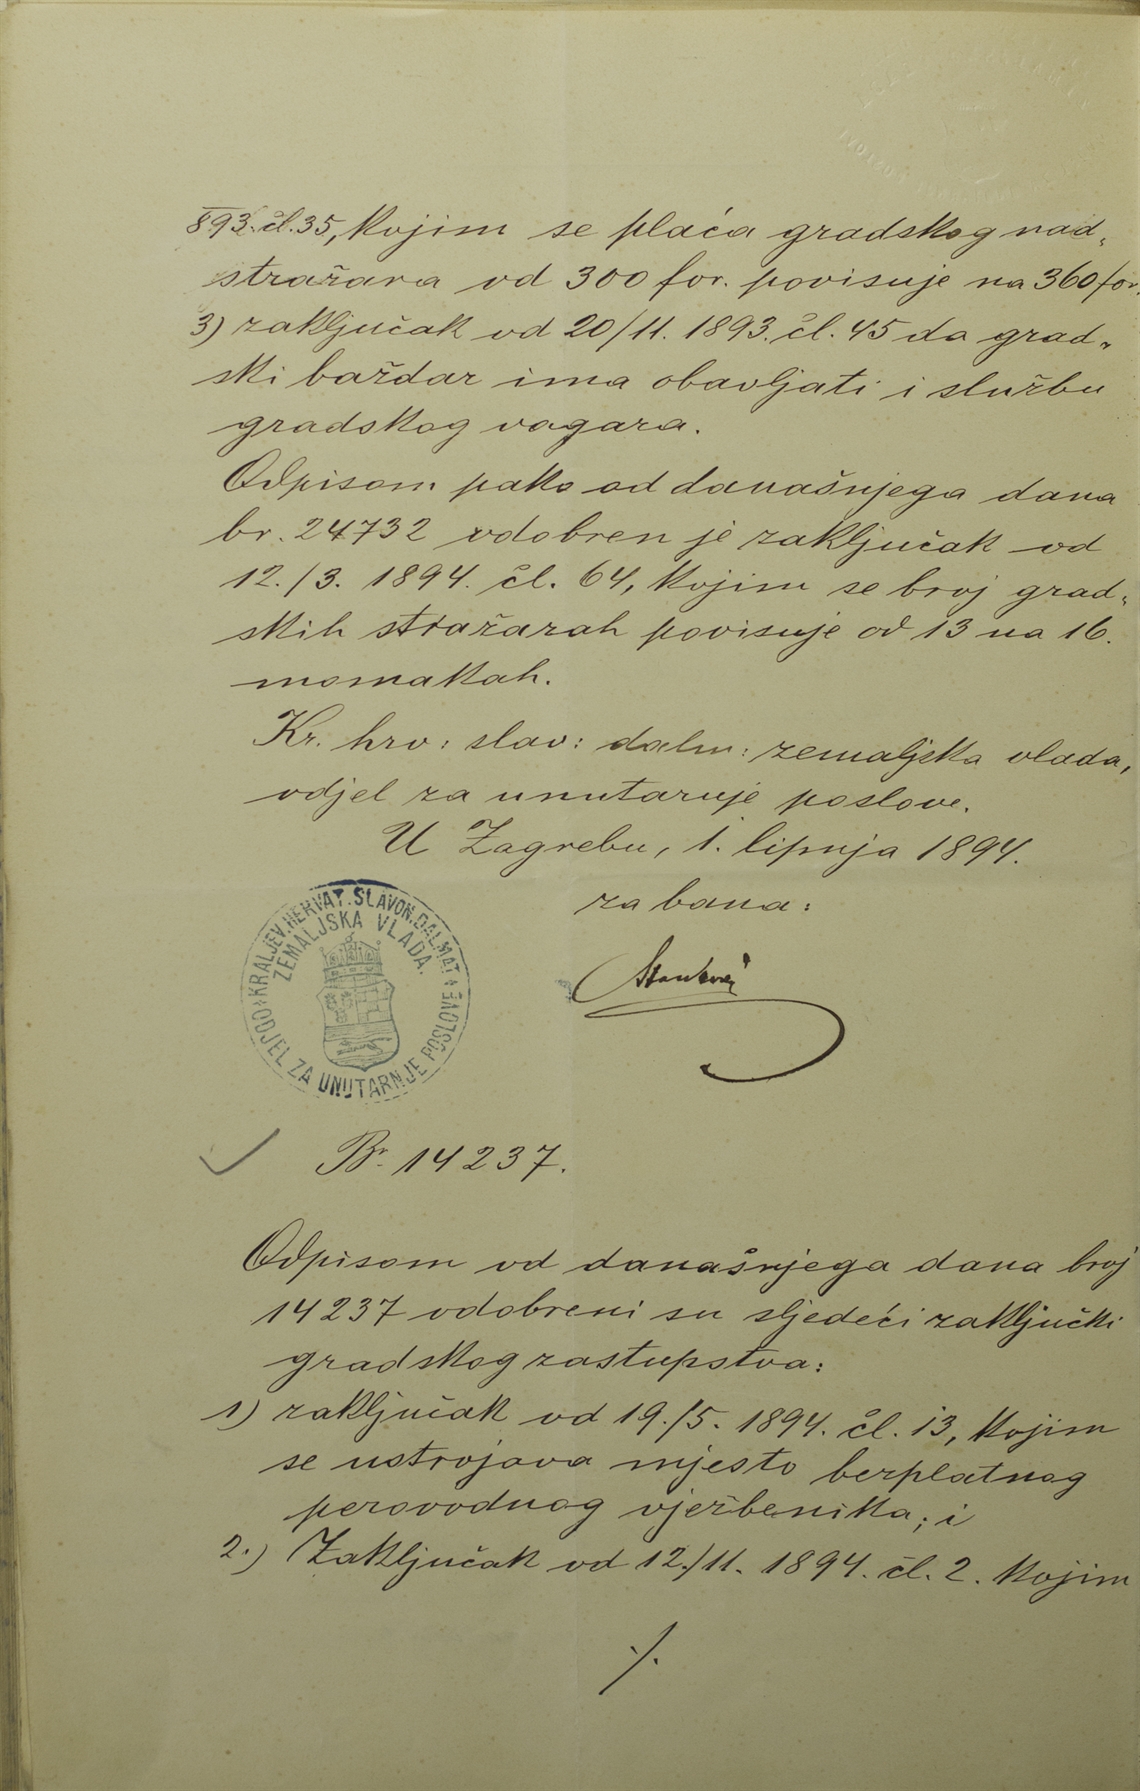 893. čl. 35, kojim se plaća gradskog nad„
stražara od 300 for. povisuje na 360 for.
3) zaključak od 20/11. 1893. čl. 45 da grad„
ski baždar ima obavljati i službu
gradskog vagara.
Odpisom pako od današnjega dana
br. 24732 odobren je zaključak od
12./3. 1894. čl. 64, kojim se broj grad„
skih stražarah povisuje od 13 na 16.
momakah.
Kr. hrv: slav: dalm: zemaljska vlada,
odjel za unutarnje poslove.
U Zagrebu, 1. lipnja 1894.
za bana:
KRALJEV. HERVAT. SLAVON. DALMAT.
ZEMALJSKA VLADA.
ODJEL ZA UNUTARNJE POSLOVE
Br. 14237.
Odpisom od današnjega dana broj
14237 odobreni su sljedeći zaključki
gradskog zastupstva:
1) zaključak od 19./5. 1894. čl. 13, kojim
se ustrojava mjesto bezplatnog
perovodnog vježbenika; i
2.) Zaključak od 12./11. 1894. čl. 2. kojim
./.